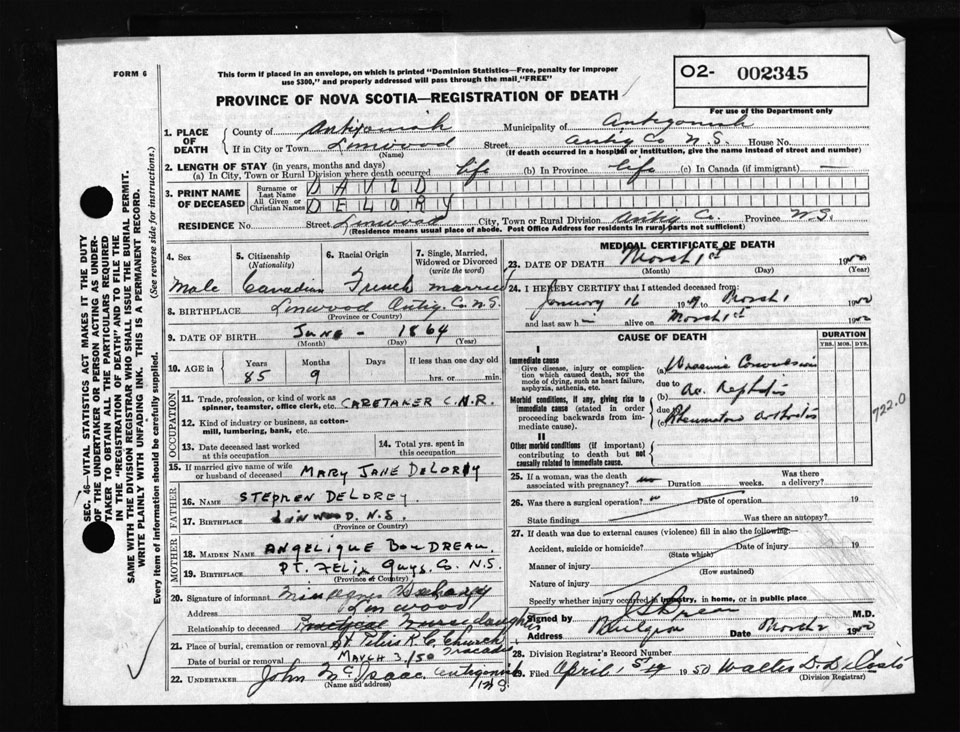 FORM 6
This form if placed in an envelope, on which is printed "Dominion Statistics—Free, penalty for improper
use $300," and properly addressed will pass through the mail, "FREE"
O2- 002345
For use of the Department only
PROVINCE OF NOVA SCOTIA—REGISTRATION OF DEATH
1. PLACE OF DEATH
County of Antigonish Municipality of Antigonish
If in City or Town Linwood Street Antig Co N.S. House No.
(Name) (If death occurred in a hospital or institution, give the name instead of street and number)
2. LENGTH OF STAY (in years, months and days)
(a) In City, Town or Rural Division where death occurred life (b) In Province life (c) In Canada (if immigrant) —
3. PRINT NAME OF DECEASED
Surname or Last Name DAVID
All Given or Christian Names DELORY
RESIDENCE No. Street Linwood City, Town or Rural Division Antig Co. Province N.S.
(Residence means usual place of abode. Post Office Address for residents in rural parts not sufficient)
4. Sex Male
5. Citizenship (Nationality) Canadian
6. Racial Origin French
7. Single, Married, Widowed or Divorced (write the word) married
8. BIRTHPLACE Linwood Antig Co. N.S.
(Province or Country)
9. DATE OF BIRTH June - 1864
(Month) (Day) (Year)
10. AGE in Years 85 Months 9 Days If less than one day old hrs. or min.
OCCUPATION
11. Trade, profession or kind of work as spinner, teamster, office clerk, etc. CARETAKER C.N.R.
12. Kind of industry or business, as cotton-mill, lumbering, bank, etc.
13. Date deceased last worked at this occupation
14. Total yrs. spent in this occupation
15. If married give name of wife or husband of deceased MARY JANE DELOREY
FATHER
16. NAME STEPHEN DELOREY
17. BIRTHPLACE LINWOOD. N.S.
(Province or Country)
MOTHER
18. MAIDEN NAME ANGELIQUE BOUDREAU
19. BIRTHPLACE PT. FELIX GUYS. CO. N.S.
(Province or Country)
20. Signature of informant
Address Linwood
Relationship to deceased Practical Nurse daughter
21. Place of burial, cremation or removal St Peters R.C. Church Tracadie
Date of burial or removal MARCH 3/50
22. UNDERTAKER John McIsaac Antigonish N.S.
(Name and address)
MEDICAL CERTIFICATE OF DEATH
23. DATE OF DEATH March 1st 1950
(Month) (Day) (Year)
24. I HEREBY CERTIFY that I attended deceased from:
January 16 19 to March 1 1950
and last saw h alive on March 1st 1950
CAUSE OF DEATH
DURATION
YRS. MOS. DYS.
I
Immediate cause
Give disease, injury or complication which caused death, not the mode of dying, such as heart failure, asphyxia, asthenia, etc.
(a) Uraemic Convulsion
due to
Morbid conditions, if any, giving rise to immediate cause (stated in order proceeding backwards from immediate cause).
(b) Ac. Nephritis
due to
(c) Rheumatoid Arthritis
722.0
II
Other morbid conditions (if important) contributing to death but not causally related to immediate cause.
25. If a woman, was the death associated with pregnancy? no Duration weeks. Was there a delivery?
26. Was there a surgical operation? no Date of operation 19
State findings Was there an autopsy?
27. If death was due to external causes (violence) fill in also the following:
Accident, suicide or homicide? Date of injury 19
(State which)
Manner of injury
(How sustained)
Nature of injury
Specify whether injury occurred in industry, in home, or in public place
Signed by M.D.
Address Date March 2 1950
28. Division Registrar's Record Number
29. Filed April 1st 1950 Walter D. DeCoste
(Division Registrar)
SEC. 46—VITAL STATISTICS ACT MAKES IT THE DUTY
OF THE UNDERTAKER OR PERSON ACTING AS UNDER-
TAKER TO OBTAIN ALL THE PARTICULARS REQUIRED
IN THE "REGISTRATION OF DEATH" AND TO FILE THE
SAME WITH THE DIVISION REGISTRAR WHO SHALL ISSUE THE BURIAL PERMIT.
WRITE PLAINLY WITH UNFADING INK. THIS IS A PERMANENT RECORD.
Every item of information should be carefully supplied. (See reverse side for instructions.)